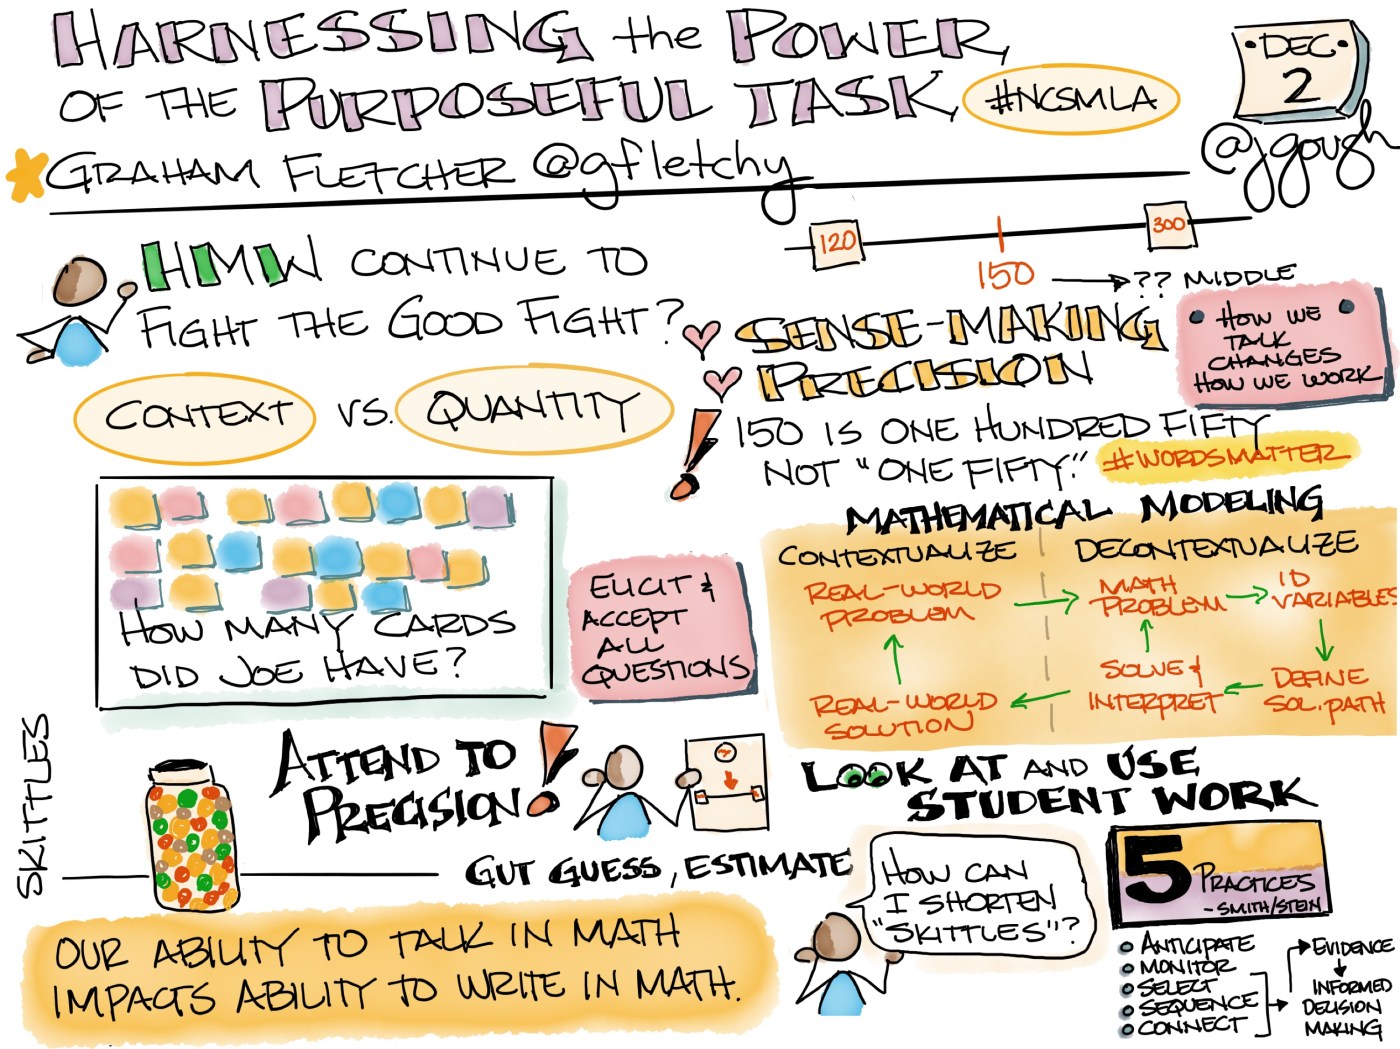 HARNESSING the POWER
OF THE PURPOSEFUL TASK
#NCSMLA
DEC
2
@jgough
GRAHAM FLETCHER @gfletchy
HMW CONTINUE TO
FIGHT THE GOOD FIGHT?
120
300
150
?? MIDDLE
SENSE-MAKING
PRECISION
HOW WE
TALK
CHANGES
HOW WE WORK
150 IS ONE HUNDRED FIFTY
NOT "ONE FIFTY."
#WORDSMATTER
CONTEXT VS. QUANTITY
HOW MANY CARDS
DID JOE HAVE?
ELICIT &
ACCEPT
ALL
QUESTIONS
MATHEMATICAL MODELING
CONTEXTUALIZE
DECONTEXTUALIZE
REAL-WORLD
PROBLEM
MATH
PROBLEM
ID
VARIABLES
REAL-WORLD
SOLUTION
SOLVE &
INTERPRET
DEFINE
SOL. PATH
SKITTLES
ATTEND TO
PRECISION!
GUT GUESS, ESTIMATE
OUR ABILITY TO TALK IN MATH
IMPACTS ABILITY TO WRITE IN MATH.
LOOK AT AND USE
STUDENT WORK
HOW CAN
I SHORTEN
"SKITTLES"?
5
PRACTICES
- SMITH/STEIN
ANTICIPATE
MONITOR
SELECT
SEQUENCE
CONNECT
EVIDENCE
INFORMED
DECISION
MAKING